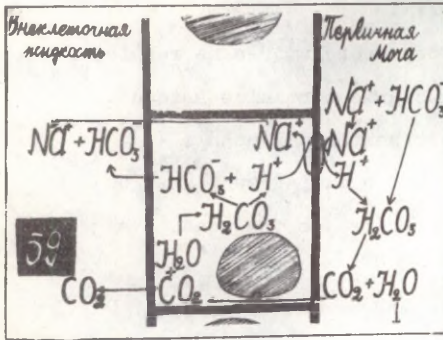 Внеклеточная жидкость
Первичная Моча
Na⁺ + HCO₃⁻
Na⁺ + HCO₃⁻
Na⁺
Na⁺
HCO₃⁻ + H⁺
H⁺
H₂CO₃
H₂CO₃
59
H₂O
+
CO₂
CO₂
CO₂ + H₂O